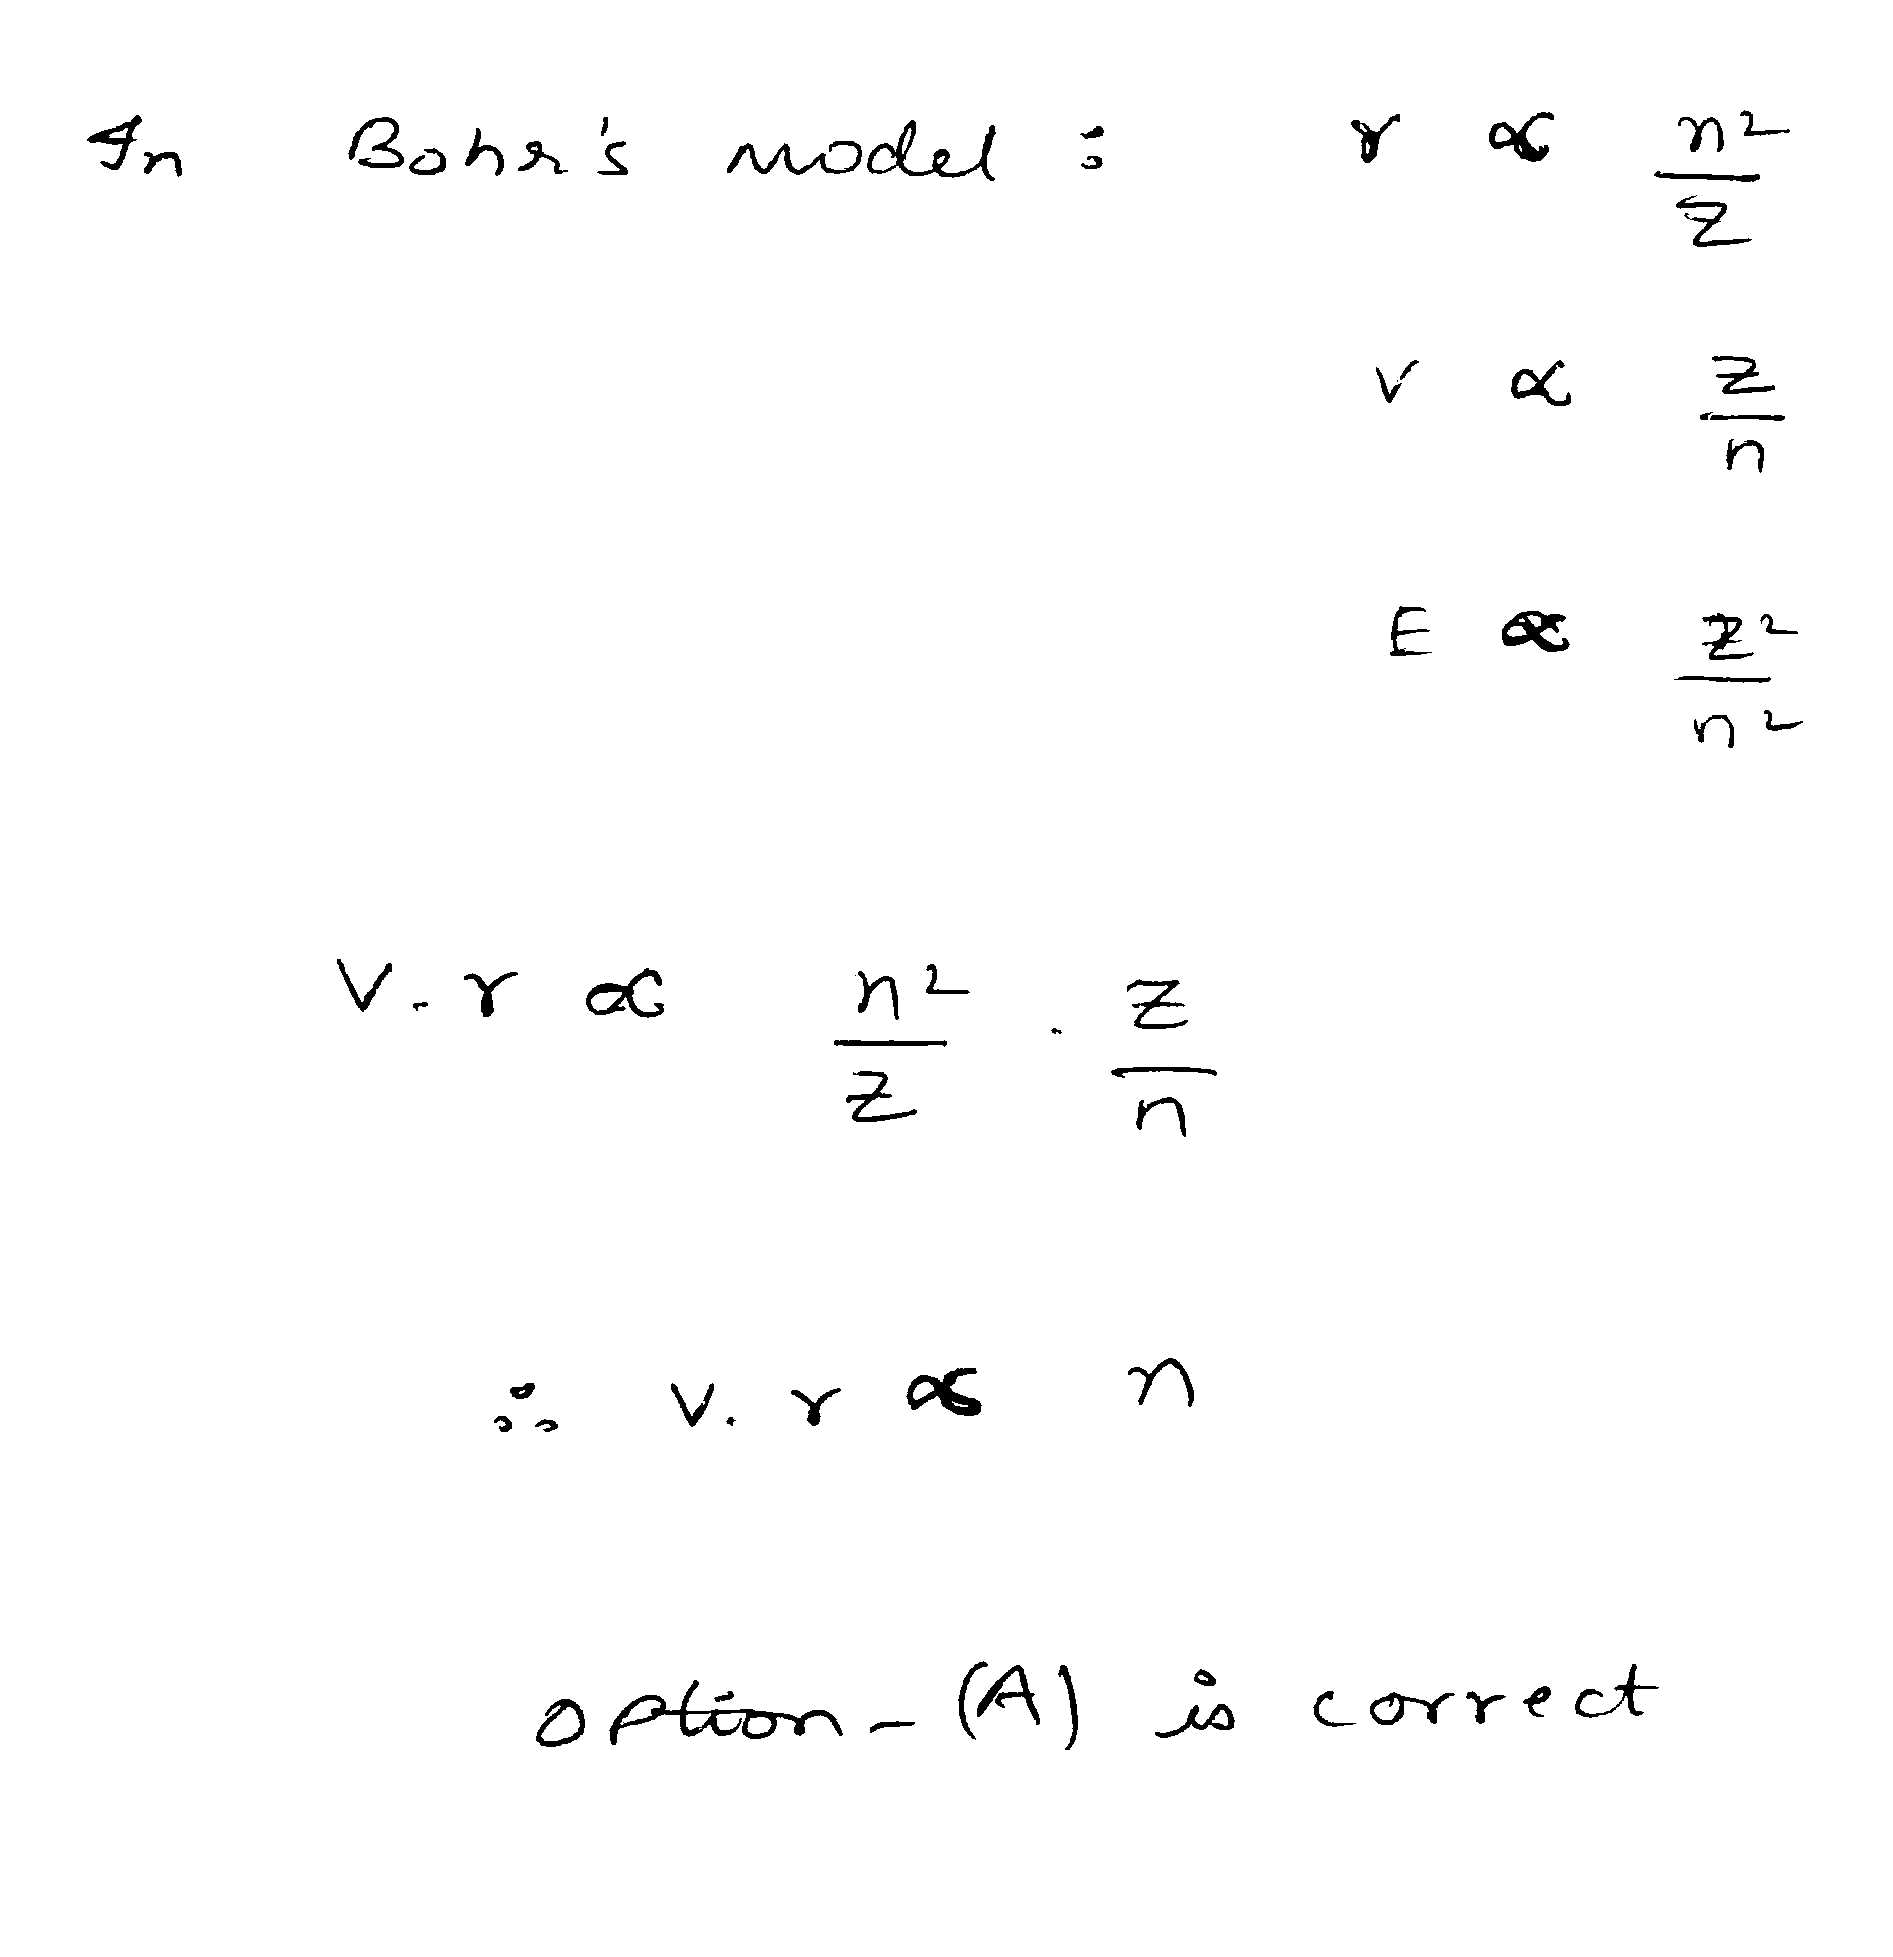 In Bohr's model : r ∝ n²/z
v ∝ z/n
E ∝ z²/n²
v.r ∝ n²/z . z/n
∴ v.r ∝ n
option-(A) is correct